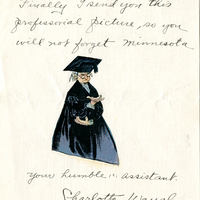 Finally I send you this
professorial picture, so you
will not forget Minnesota
Your humble assistant
Charlotte